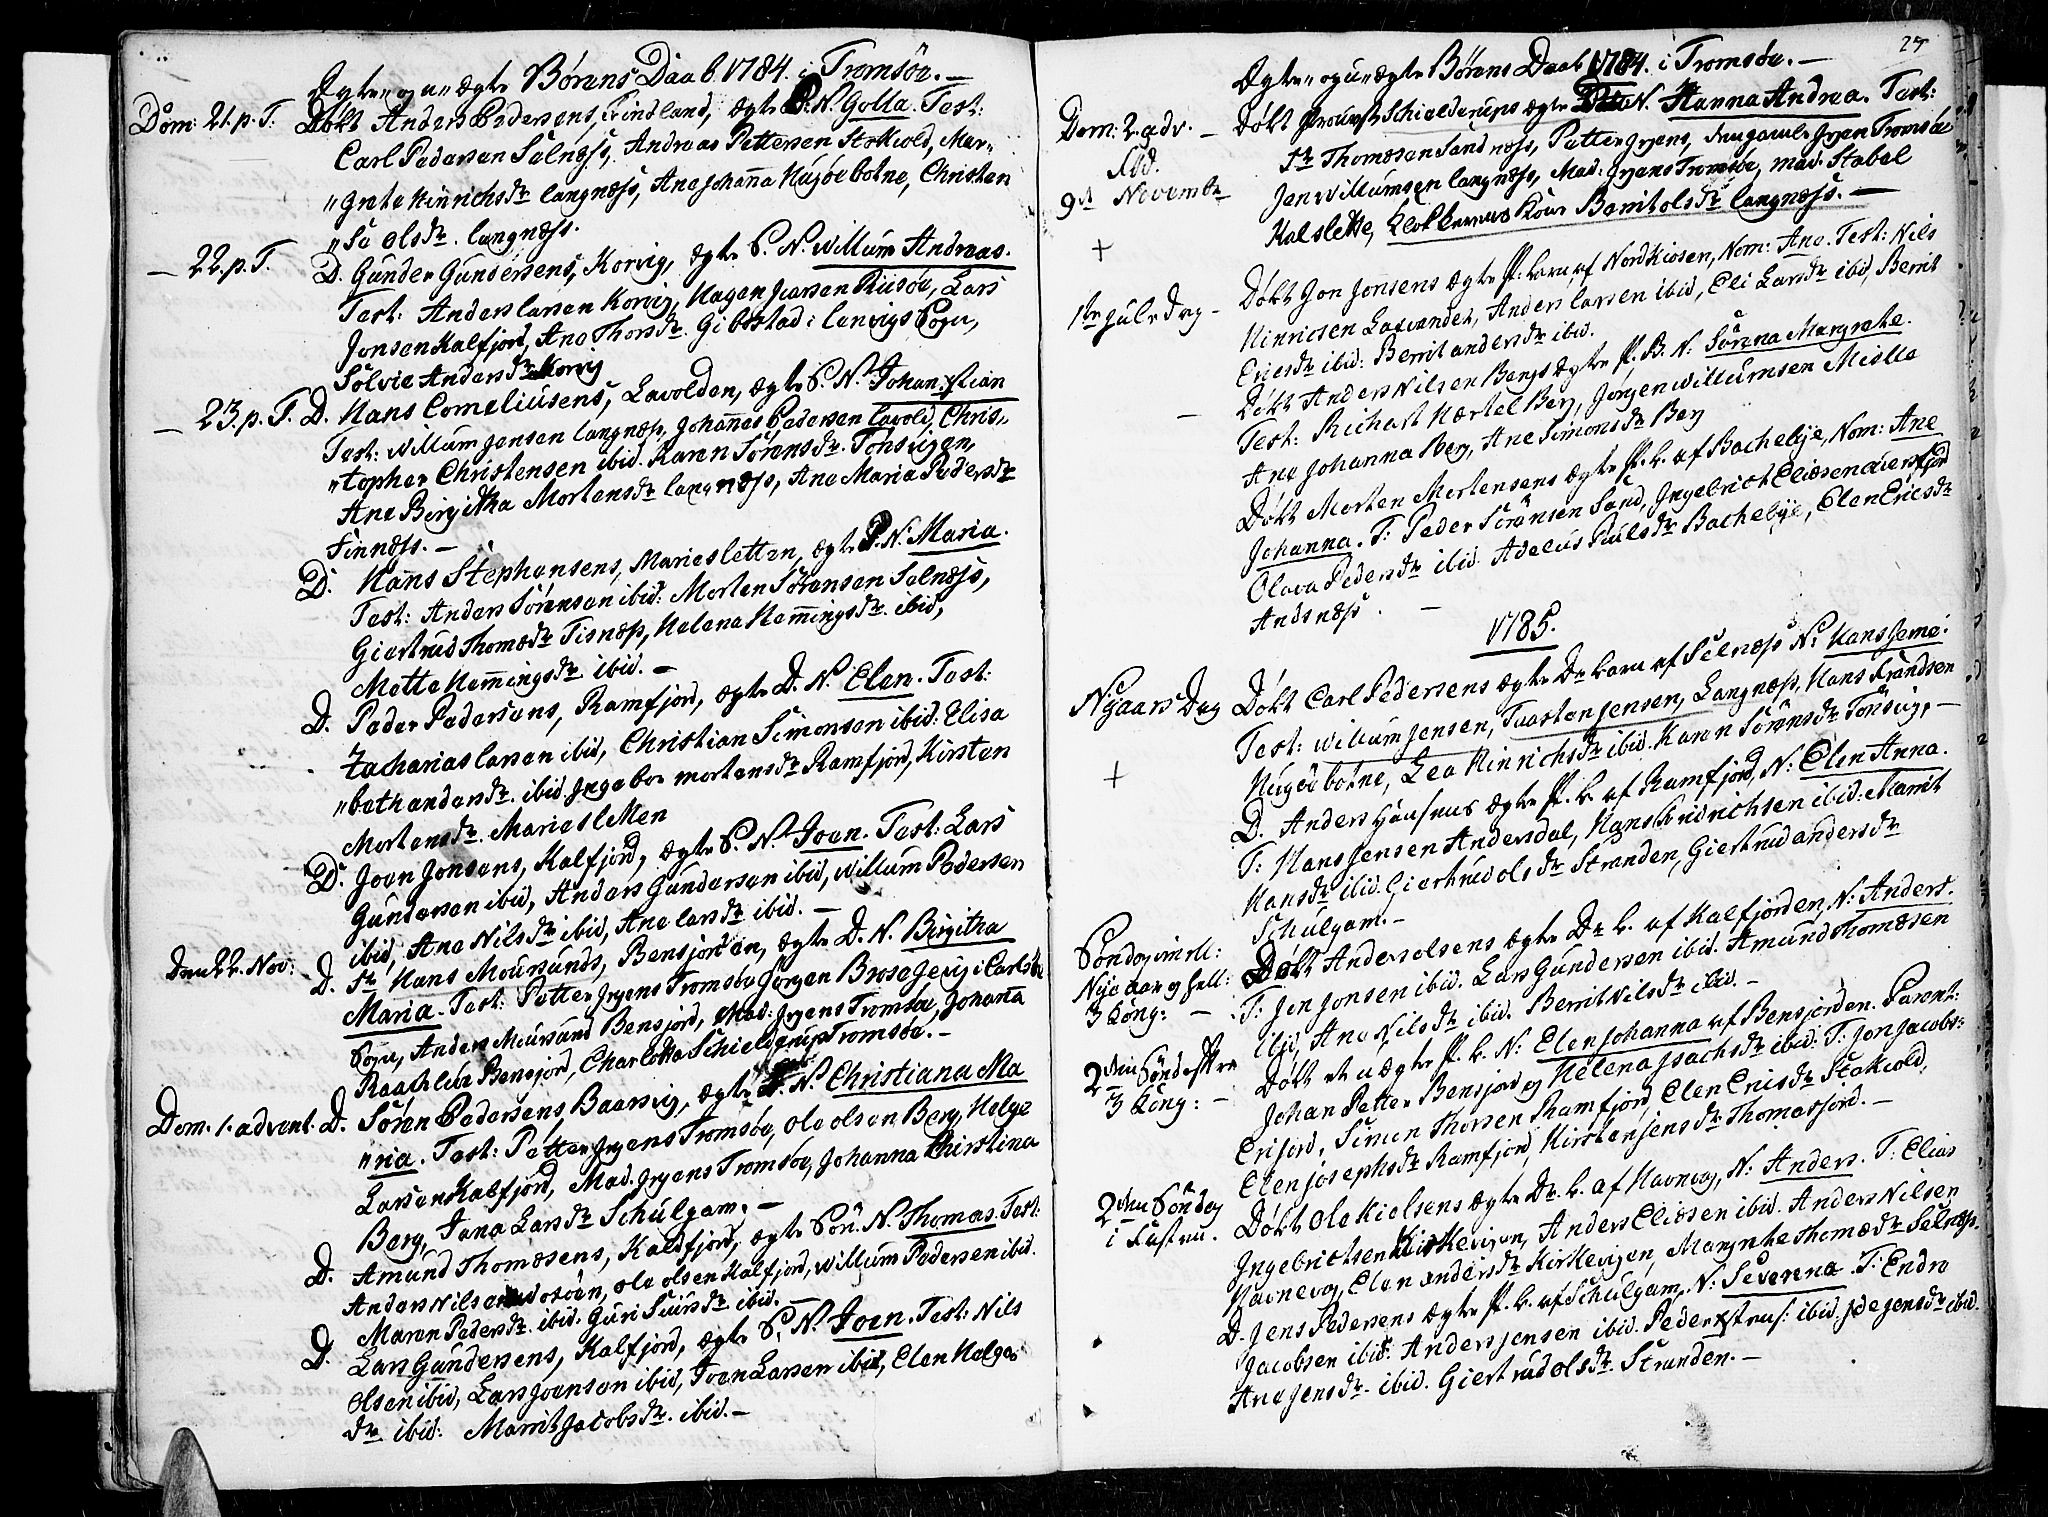 Ægte og u ægte Børens Daab 1784. i Tromsöe. —
Dom: 21. p. T. Döbt Anders Pedersens, Findland, ægte P. N. Golla. Test:
Carl Pedersen Selnæss, Andreas Pettersen Stokvold, Mar-
"grete Hinrichsdr langnæss, Ane Johanna Hugöebotne, Christen
"Sa olsdr. langnæss.
— 22. p. T. D. Gunder Gundersens, Korvig, ægte S. N. Willum Andreas.
Test: Anders larsen Korvig, Hagen Jversen Riisöe, Lars
Jonsen Kalfjord, Ane Thorsdr. Gibostad i lenvigs Sogn,
Sölvie Andersdr Korvig
— 23. p. T. D. Hans Corneliusens, Lavolden, ægte S. N. Johan
Test: Willum Jensen langnæss, Johannes Pedersen Lavold, Chris-
"topher Christensen ibid. Karen Sörensdr. Tönsvigen,
Ane Birgitha Mortensdr langnæss, Ane Maria Pedersdr
Finnæss. —
D. Hans Stephansens, Mariesletten, ægte P. N. Maria.
Test: Anders Sörensen ibid: Morten Sörensen Selnæss,
Giertrud Thomædr Tisnæss, Helena Hemmingsdr. ibid,
Mette Hemmingsdr ibid. —
D. Peder Pedersens, Ramfjord, ægte D. N. Elen. Test:
Zacharias larsen ibid, Christian Simonsen ibid: Elisa
"beth andersdr. ibid. Ingebor mortensdr Ramfjord, Kirsten
Mortensdr. Mariesletten
D. Joen Jonsens, Kalfjord, ægte S. N. Joen. Test: Lars
Gundersen ibid, Anders Gundersen ibid, Willum Pedersen
ibid, Ane Nilsdr ibid, Ane larsdr ibid. —
den 22. Nov: D. Sr Hans Moursunds, Bensjorden, ægte D. N. Birgitha
Maria. Test: Petter Jyens Tromsöe, Jörgen Brose Jevig i Carlsöe
Sogn, Anders Moursund Bensjord, Mad. Jyens Tromsöe, Johanna
Bensjord, Charlotta Schielderup Tromsöe. —
Dom. 1. advent. D. Sören Pedersens Baarsvig, ægte P. N. Christiana Ma
"ria. Test: Petter Jyens Tromsöe, Ole olsen Berg, Helge
Larsen Kalfjord, Mad. Jyens Tromsöe, Johanna Christina
Berg, Jana Larsdr Schulgam. —
D. Amund Thomæsens, Kaldfjord, ægte Sön. N. Thomas. Test:
Anders Nilsen, Ole olsen Kalfjord, Willum Pedersen ibid.
Maren Pedersdr. ibid. Guri Siursdr ibid. —
D. Lars Gundersens, Kalfjord, ægte S. N. Joen. Test: Nils
Olsen ibid, Lars Joensen ibid, Joen Larsen ibid, Elen Helges
dr ibid: Marrit Jacobsdr. ibid. —
25
Ægte og u ægte Børens Daab 1784. i Tromsöe. —
Dom: 2. adv. — Döbt Schielderups ægte N. Hanna Andrea. Test:
Sr Thomæsen Sandnæss, Petter Jyens, den gamle Jyen Tromsöe
9d Novembr Jens Willumsen langnæss, Mad: Jyens Tromsöe, mad. Stabel
+ Kalslette, Klokkerens Kone Berrit olsdr langnæss. —
1ste Jule Dag — Döbt Jon Jonsens ægte P. barn af Nordkiosen, Nom: Ane. Test: Nils
Hinricsen Laxvandet, Anders larsen ibid, Eli Larsdr ibid, Berrit
Ericsdr ibid: Berrit andersdr ibid.
— Döbt Anders Nilsen Bergs ægte P. B. N: Sörena Margrethe.
Test: Richart Hærtel Berg, Jörgen Willumsen Mielle
Ane Johanna Berg, Ane Simonsdr Berg
Döbt Morten Mortensens ægte P. b. af Bachebye, Nom: Ane
Johanna. T: Peder Sörensen Sand, Ingebrict Eliæsen
Olava Pedersdr ibid. Adelus Paulsdr Bachebye, Elen Ericsdr
Andsnæss. —
1785.
Nyaars Dag Döbt Carl Pedersens ægte Dr barn af Selnæss N: Hans Jemes.
Test: Willum Jensen, Tvarsten Jensen, Langnæss, Hans Frandsen
+ Hugöebotne, Lea Hinrichsdr ibid. Karen Sörensdr Tönsvig. —
D. Anders Hansens ægte P. b. af Ramfjord, N: Elen Anna.
T: Hans Jensen Andersdal, Hans Fridrichsen ibid: Marrit
Hansdr ibid. Giertrud olsdr Stranden, Giertrud andersdr
Schulgam. —
Söndag im ll: Döbt Anders olsens ægte Dr b. af Kalfjorden, N: Anders.
Nye aar og hell: T: Jen Jonsen ibid. Lars Gundersen ibid. Amund Thomæsen
3 Kong: — ibid, Ane Nilsdr ibid. Berrit Nilsdr ibid. —
2den Sönd eftr Döbt et uægte P. b. N: Elen Johanna af Bensjorden. Parent:
3 Kong: — Johan Petter Bensjord og Helena Jsachsdr ibid: T: Jon Jacobs:
Erfjord, Simon Thorsen Ramfjord, Elen Ericsdr Stokvold,
Elen Josephsdr Ramfjord, Kirsten Jensdr Thomasjord. —
2den Söndag Döbt Ole Kielsens ægte Dr. b. af Havnevog, N: Anders. T: Elias
i Fasten. Ingebrictsen Kirkevigen, Anders Eliæsen ibid. Anders Nilsen
Havnevog, Elen andersdr Kirkevigen, Margrethe Thomædr Selnæss.
D. Jens Pedersens ægte P. b. af Schulgam, N: Severena. T: Endre
Jacobsen ibid. Anders Jensen ibid. Peder ibid. Jdde Jensdr ibid.
Ane Jensdr. ibid. Giertrud olsdr. Stranden. —